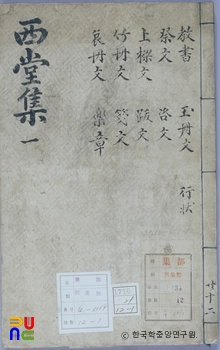 共十六
教書 玉冊文 行狀
祭文 咨文
上樑文 跋文
竹冊文 箋文
哀冊文 樂章
西堂集 一
© 한국학중앙연구원